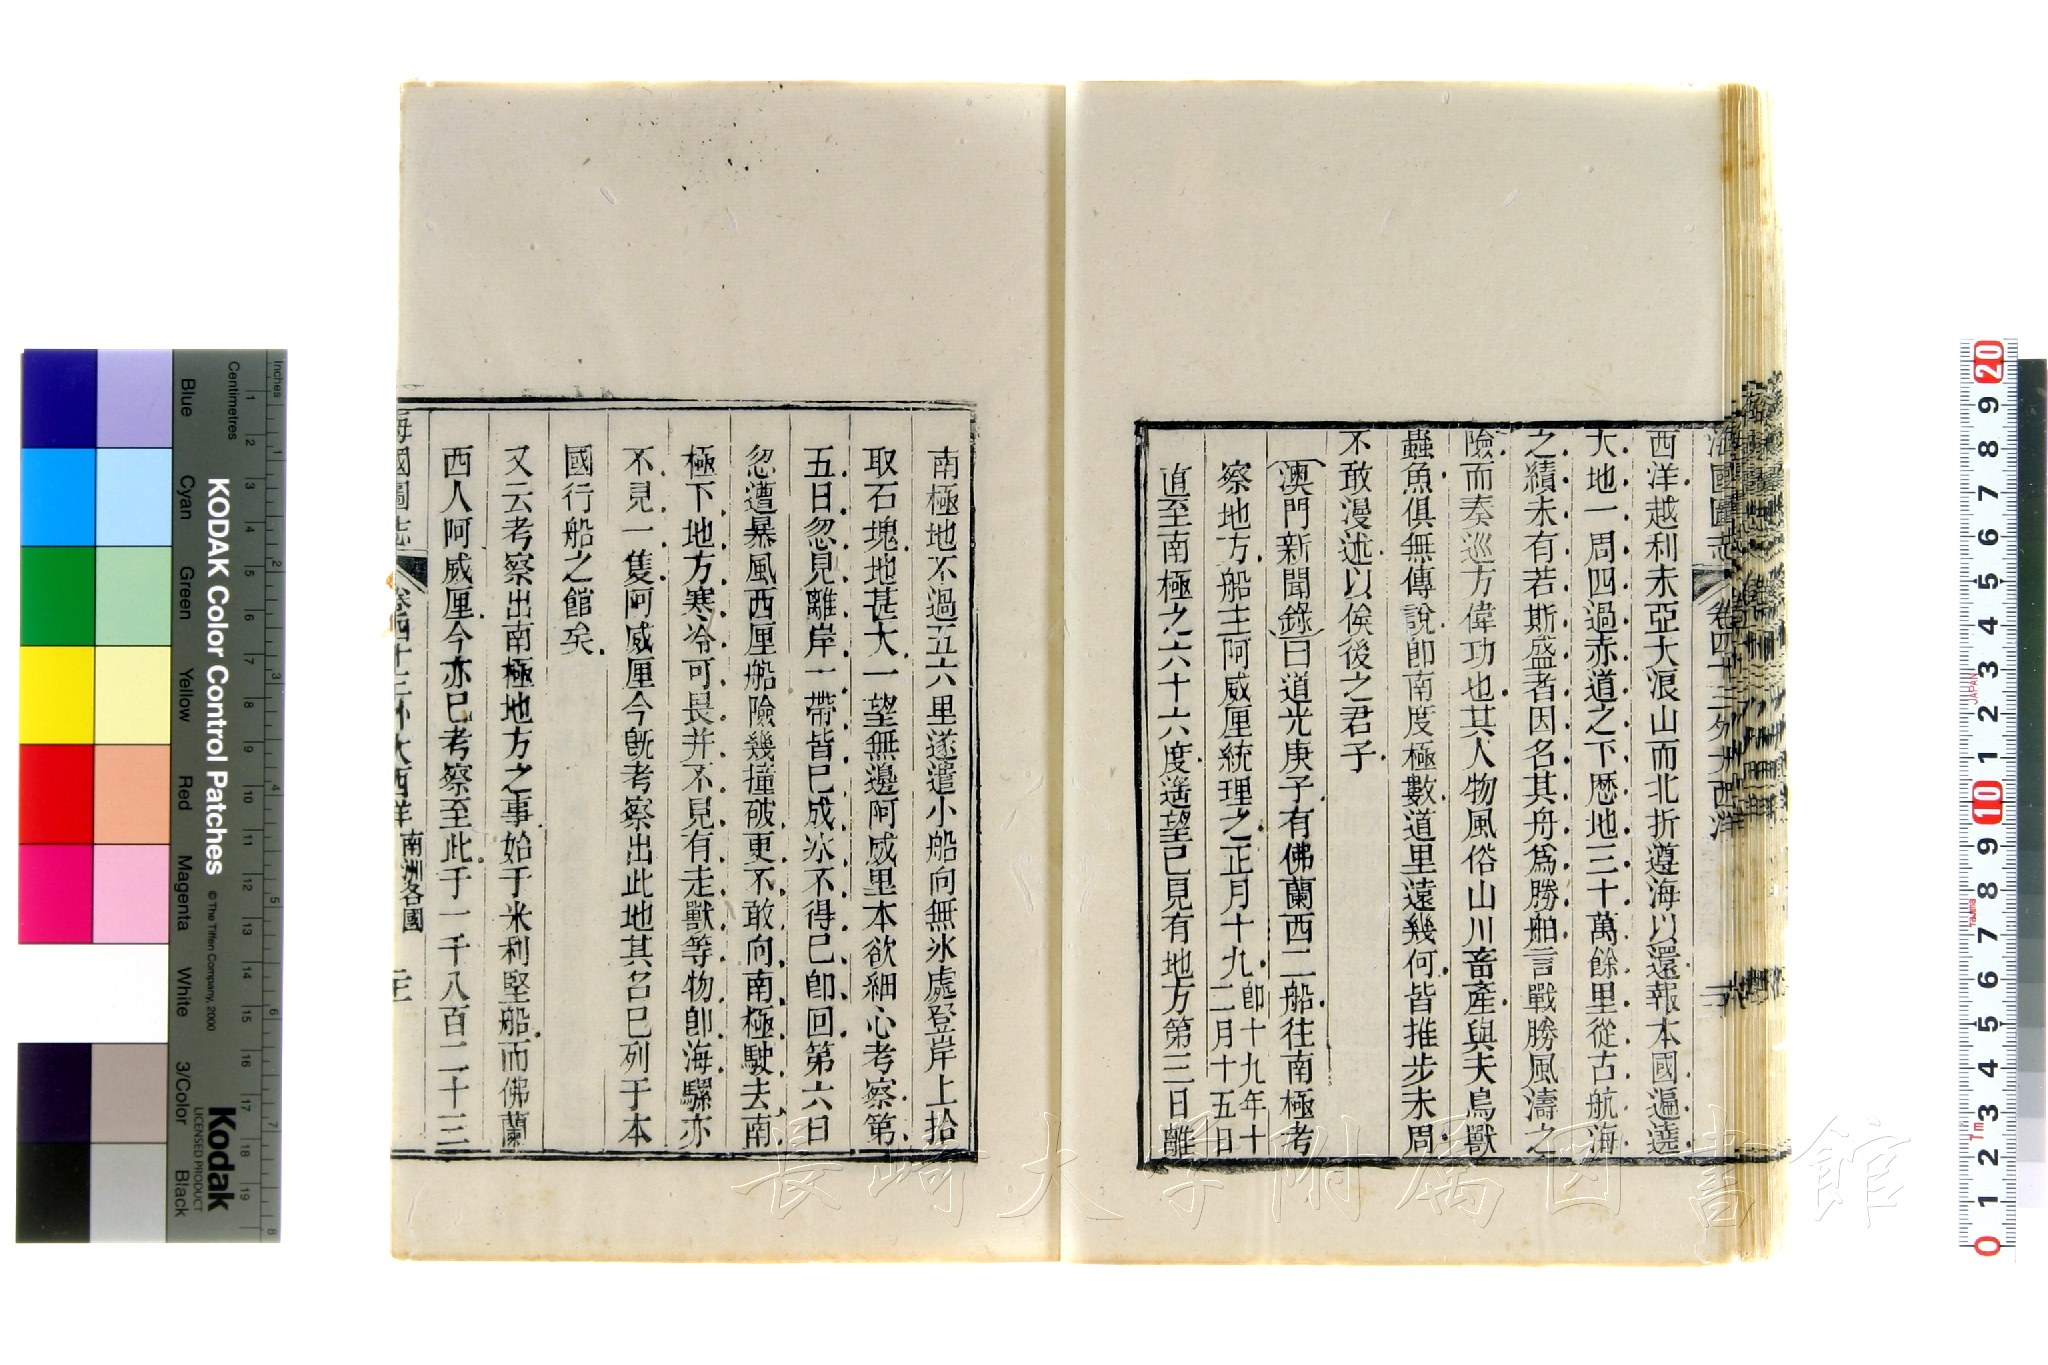 海國圖志 卷四十三 外大西洋
西洋越利未亞大浪山而北折遵海以還報本國遍遶
大地一周四過赤道之下歷地三十萬餘里從古航海
之績未有若斯盛者因名其舟爲勝舶言戰勝風濤之
險而奏巡方偉功也其人物風俗山川畜產與夫鳥獸
蟲魚俱無傳說卽南度極數道里遠幾何皆推步未周
不敢漫述以俟後之君子
澳門新聞錄曰道光庚子有佛蘭西二船往南極考
察地方船主阿威厘統理之正月十九卽十九年十
二月十五日
直至南極之六十六度遥望已見有地方第三日離
南極地不過五六里遂遣小船向無氷處登岸上拾
取石塊地甚大一望無邊阿威里本欲細心考察第
五日忽見離岸一帶皆已成氷不得已卽回第六日
忽遭暴風西厘船險幾撞破更不敢向南極駛去南
極下地方寒冷可畏并不見有走獸等物卽海騾亦
不見一隻阿威厘今既考察出此地其名已列于本
國行船之館矣
又云考察出南極地方之事始于米利堅船而佛蘭
西人阿威厘今亦已考察至此于一千八百二十三
海國圖志 卷四十三 外大西洋 南洲各國
長崎大学附属図書館
KODAK Color Control Patches
© The Tiffen Company, 2000
Kodak
LICENSED PRODUCT
Inches
Centimetres
Blue
Cyan
Green
Yellow
Red
Magenta
White
3/Color
Black
JAPAN